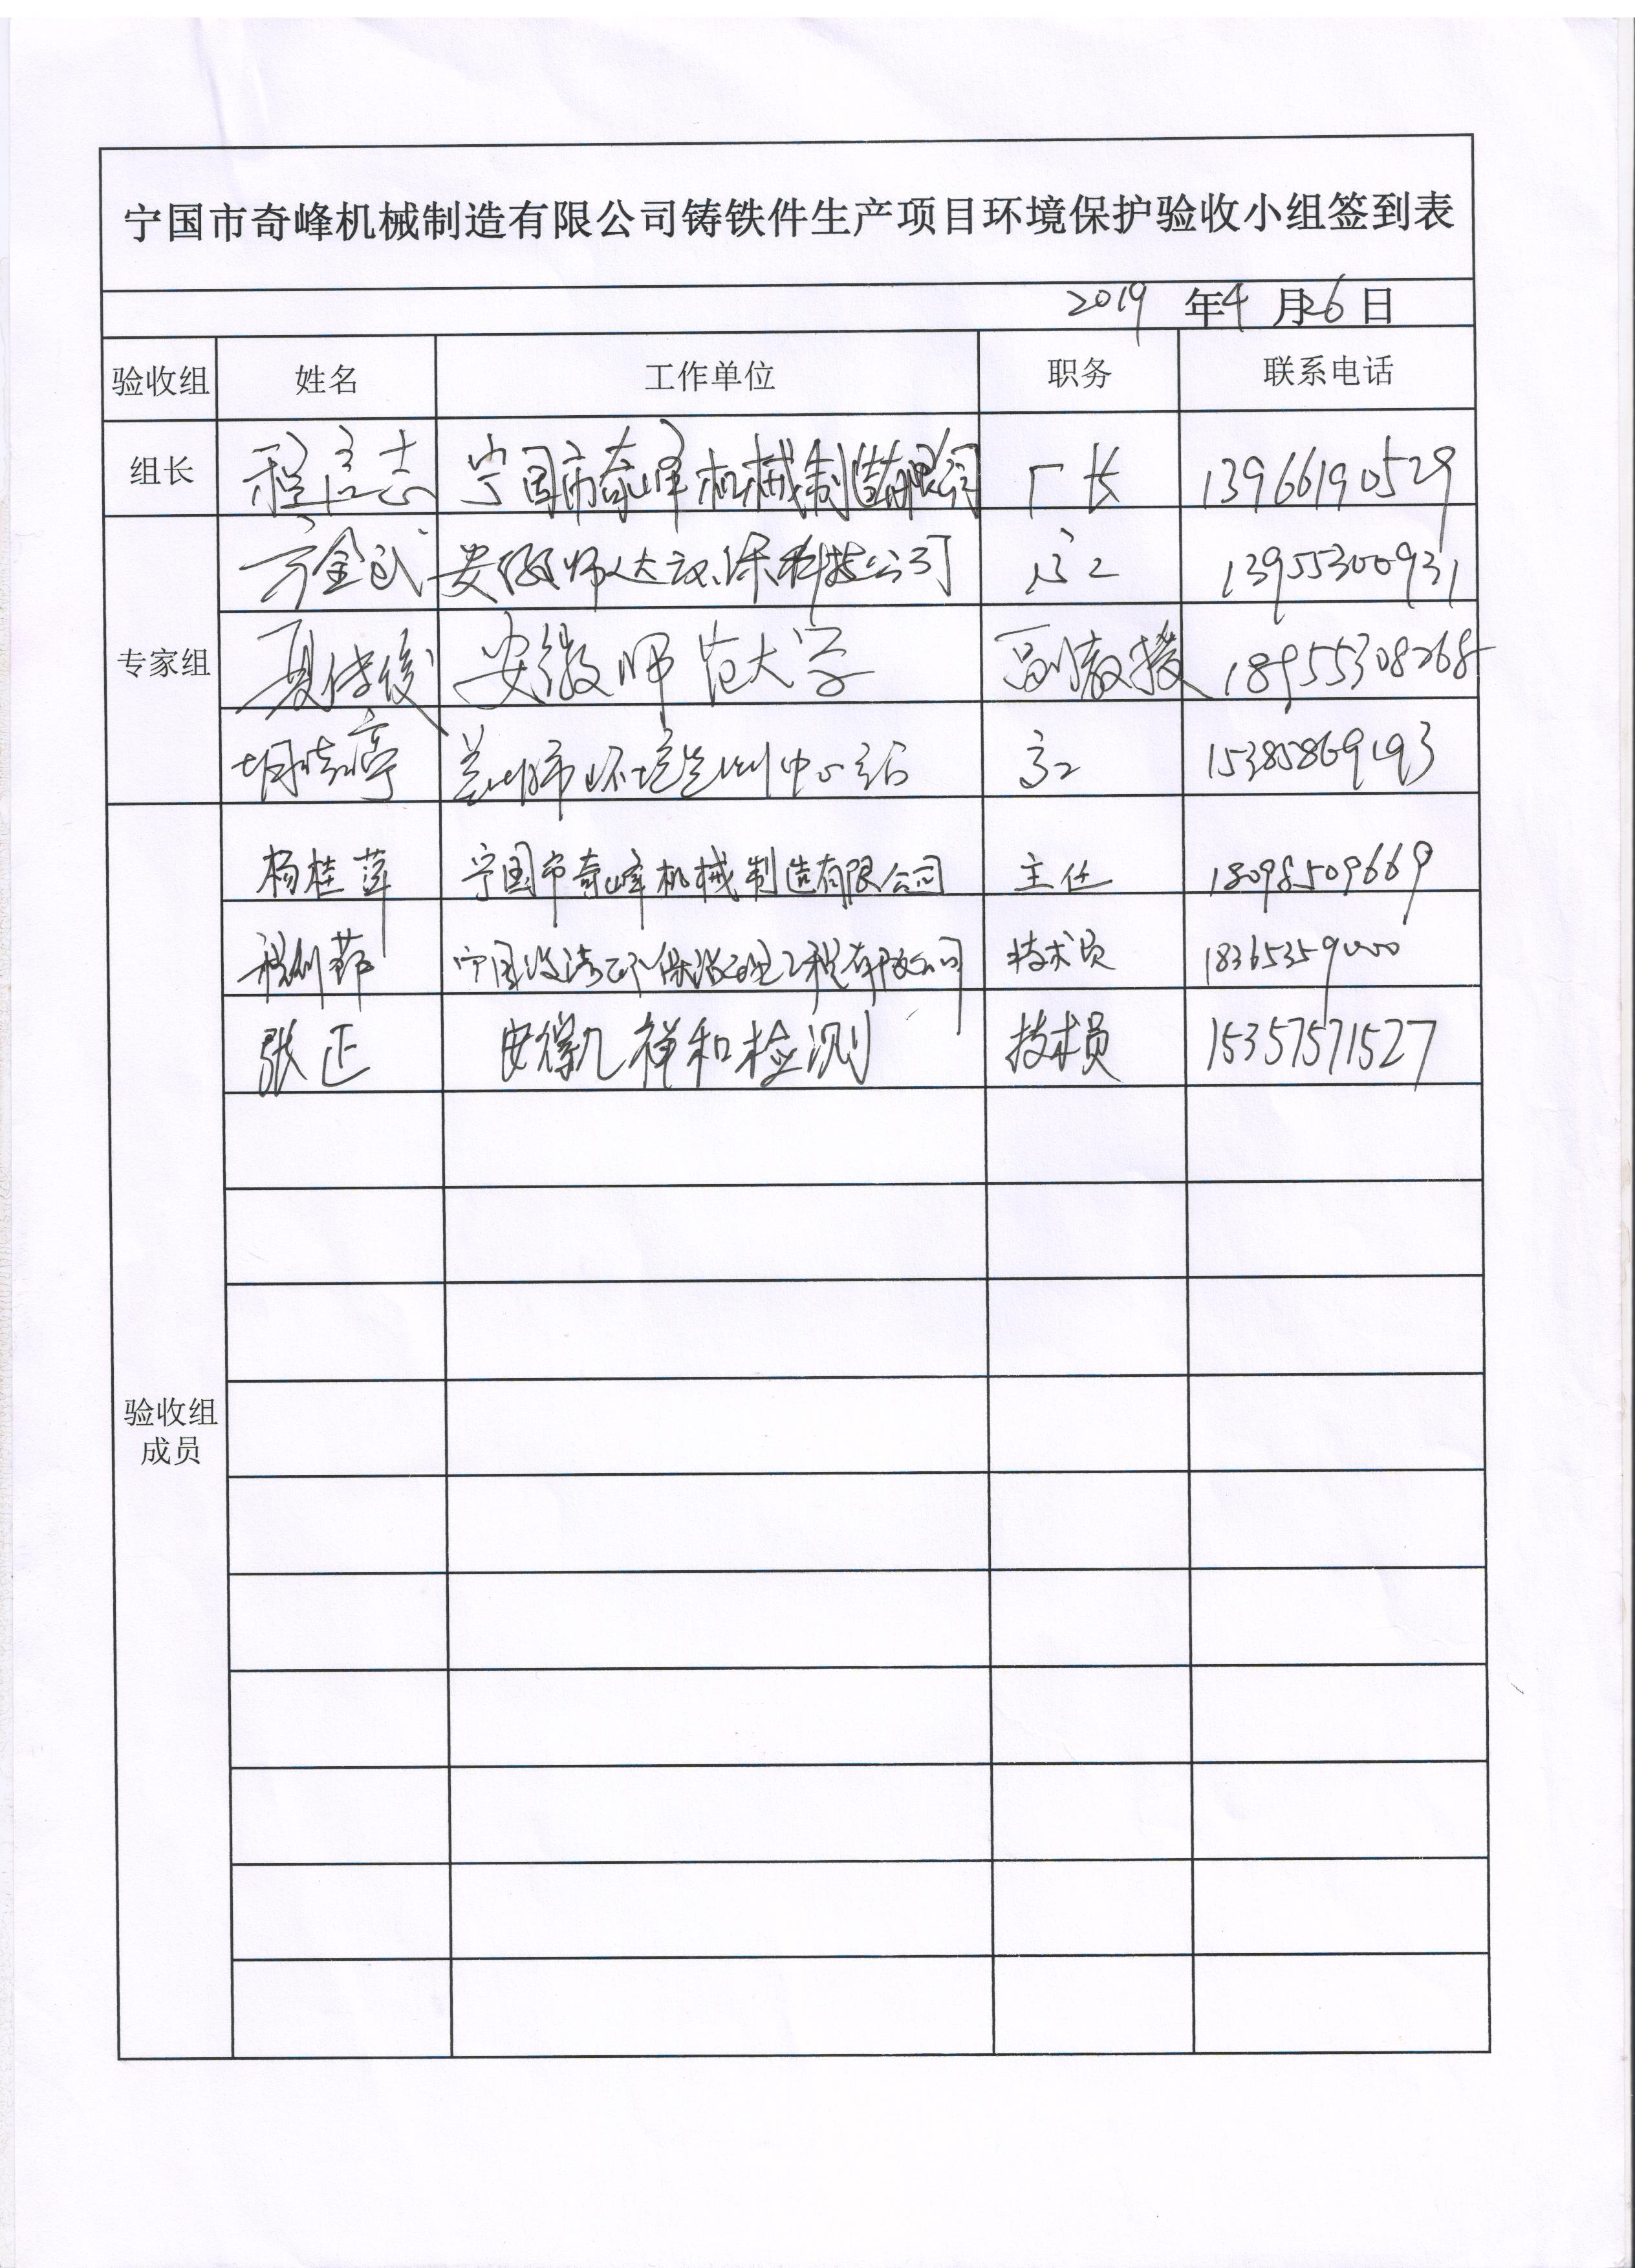 宁国市奇峰机械制造有限公司铸铁件生产项目环境保护验收小组签到表
2019 年4 月26日
验收组 姓名 工作单位 职务 联系电话
组长 程宏志 宁国市奇峰机械制造有限公司 厂长 13966190529
方金武 安徽师大环保科技公司 高工 13955300931
专家组 夏传俊 安徽师范大学 副教授 18955308268
胡婷 芜湖市环境监测中心站 高工 15385869193
杨桂萍 宁国市奇峰机械制造有限公司 主任 18098509669
程 宁国 环保治理工程有限公司 技术员 18365359000
张正 安徽祥和检测 技术员 15357571527
验收组
成员